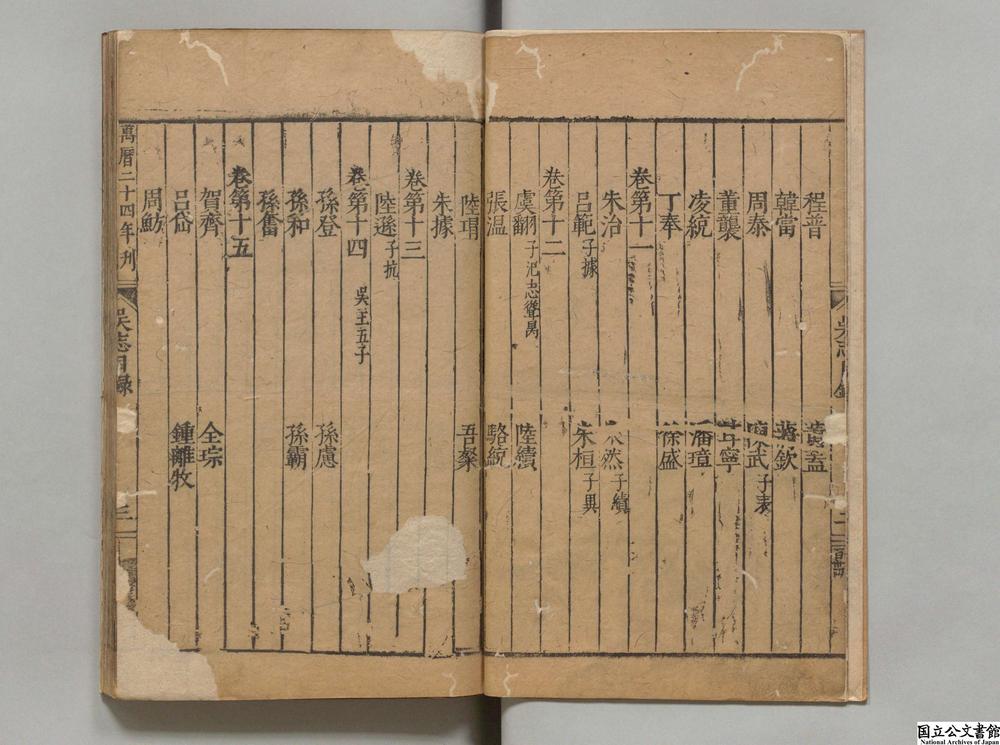 程普 黃蓋
韓當 蔣欽
周泰 陳武子表
董襲 甘寧
凌統 潘璋
丁奉 徐盛
卷第十一
朱治 朱然子績
呂範子據 朱桓子異
卷第十二
虞翻子汜忠聳昺 陸績
張温 駱統
陸瑁 吾粲
朱據
卷第十三
陸遜子抗
卷第十四 吳主五子
孫登 孫慮
孫和 孫霸
孫奮
卷第十五
賀齊 全琮
呂岱 鍾離牧
周魴
吳志目錄 三
萬曆二十四年刊
吳志目錄 二
国立公文書館
National Archives of Japan